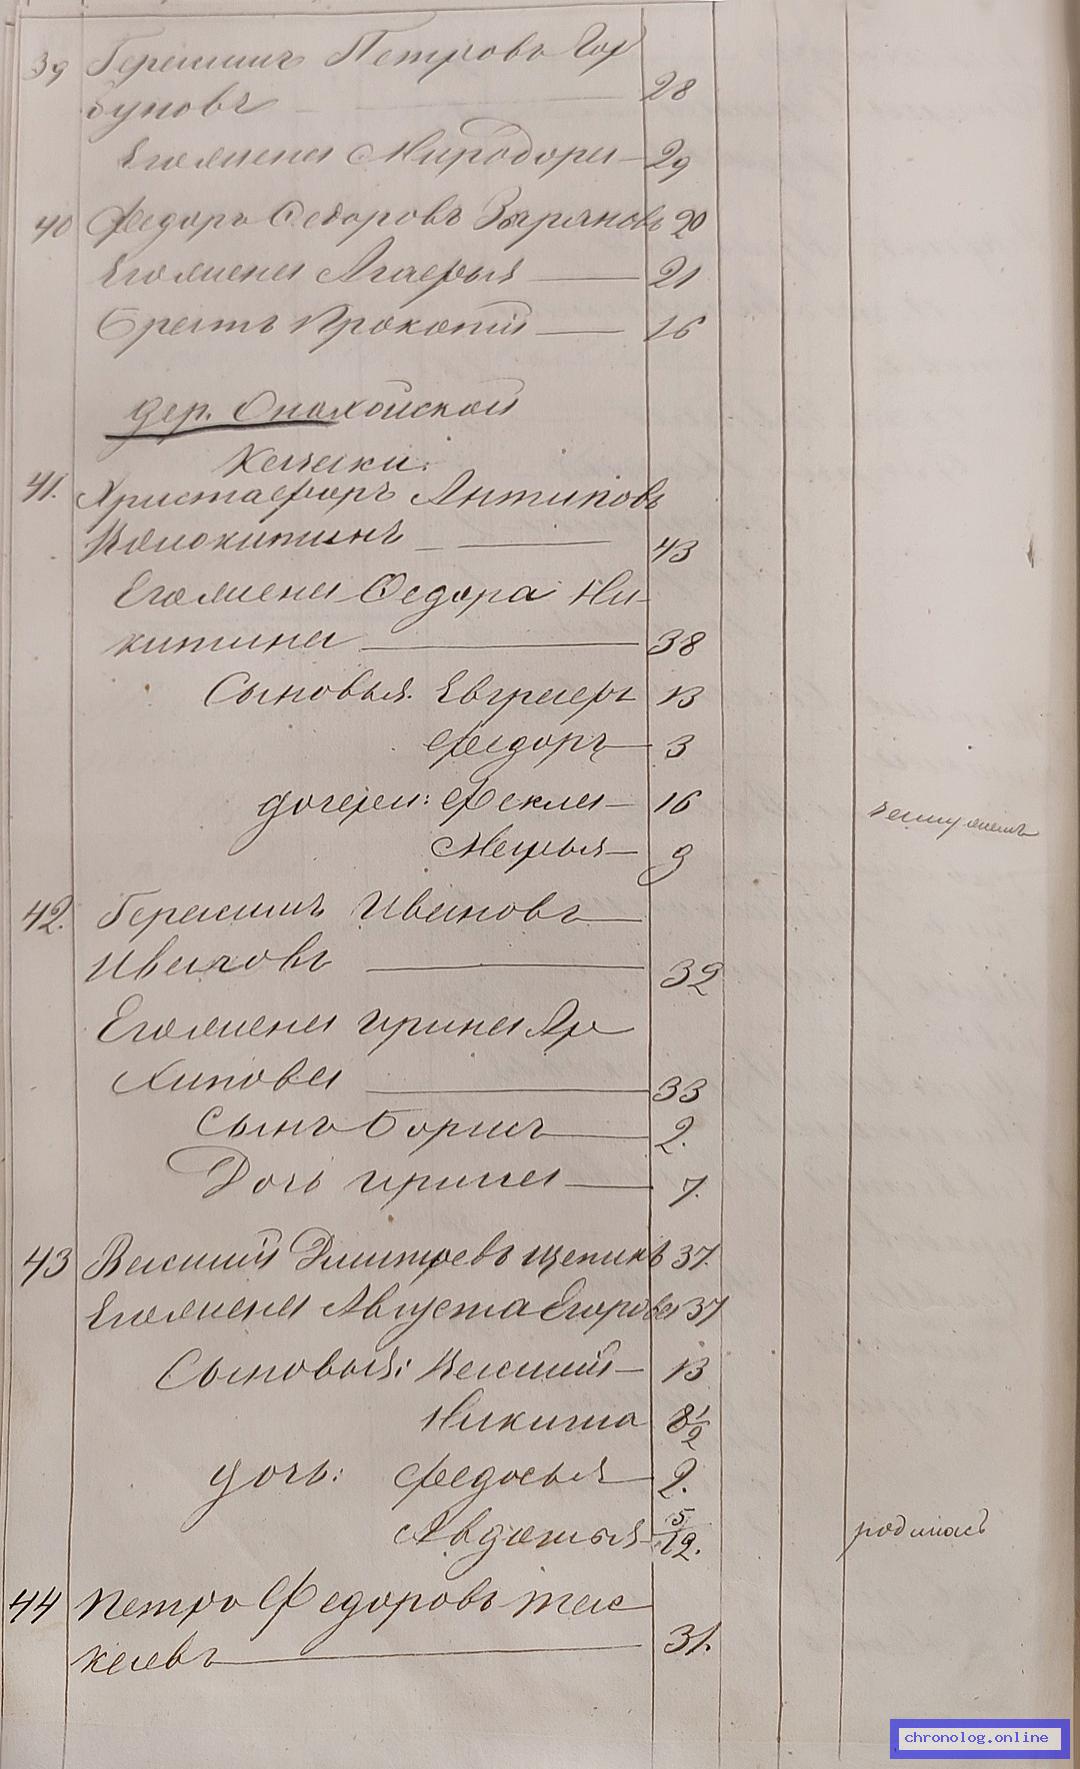 39 Герасимъ Петровъ Гор
буновъ 28
Его жена Миродора 29
40 Федоръ Федоровъ Зыряновъ 20
Его жена Агафья 21
Братъ Прокопій 16
дер. Онохойской
41. Христафоръ Антиповъ
43
Его жена Федора Ни-
китина 38
Сыновья. Евграфъ 13
Федоръ 3
дочери: Фекла 16
Марья 9
замужемъ
42. Герасимъ Ивановъ
Ивановъ 32
Его жена Ирина Ар
хипова 33
Сынъ Борисъ 2.
Дочь Ирина 7.
43 Василій Дмитревъ Щепинъ 37.
Его жена Августа Егорова 37
Сыновья: Василій 13
Никита 8 1/2
дочь: Федосья 2.
Авдотья 5/12. родилась
44 Петръ Федоровъ Мас
31.
chronolog.online